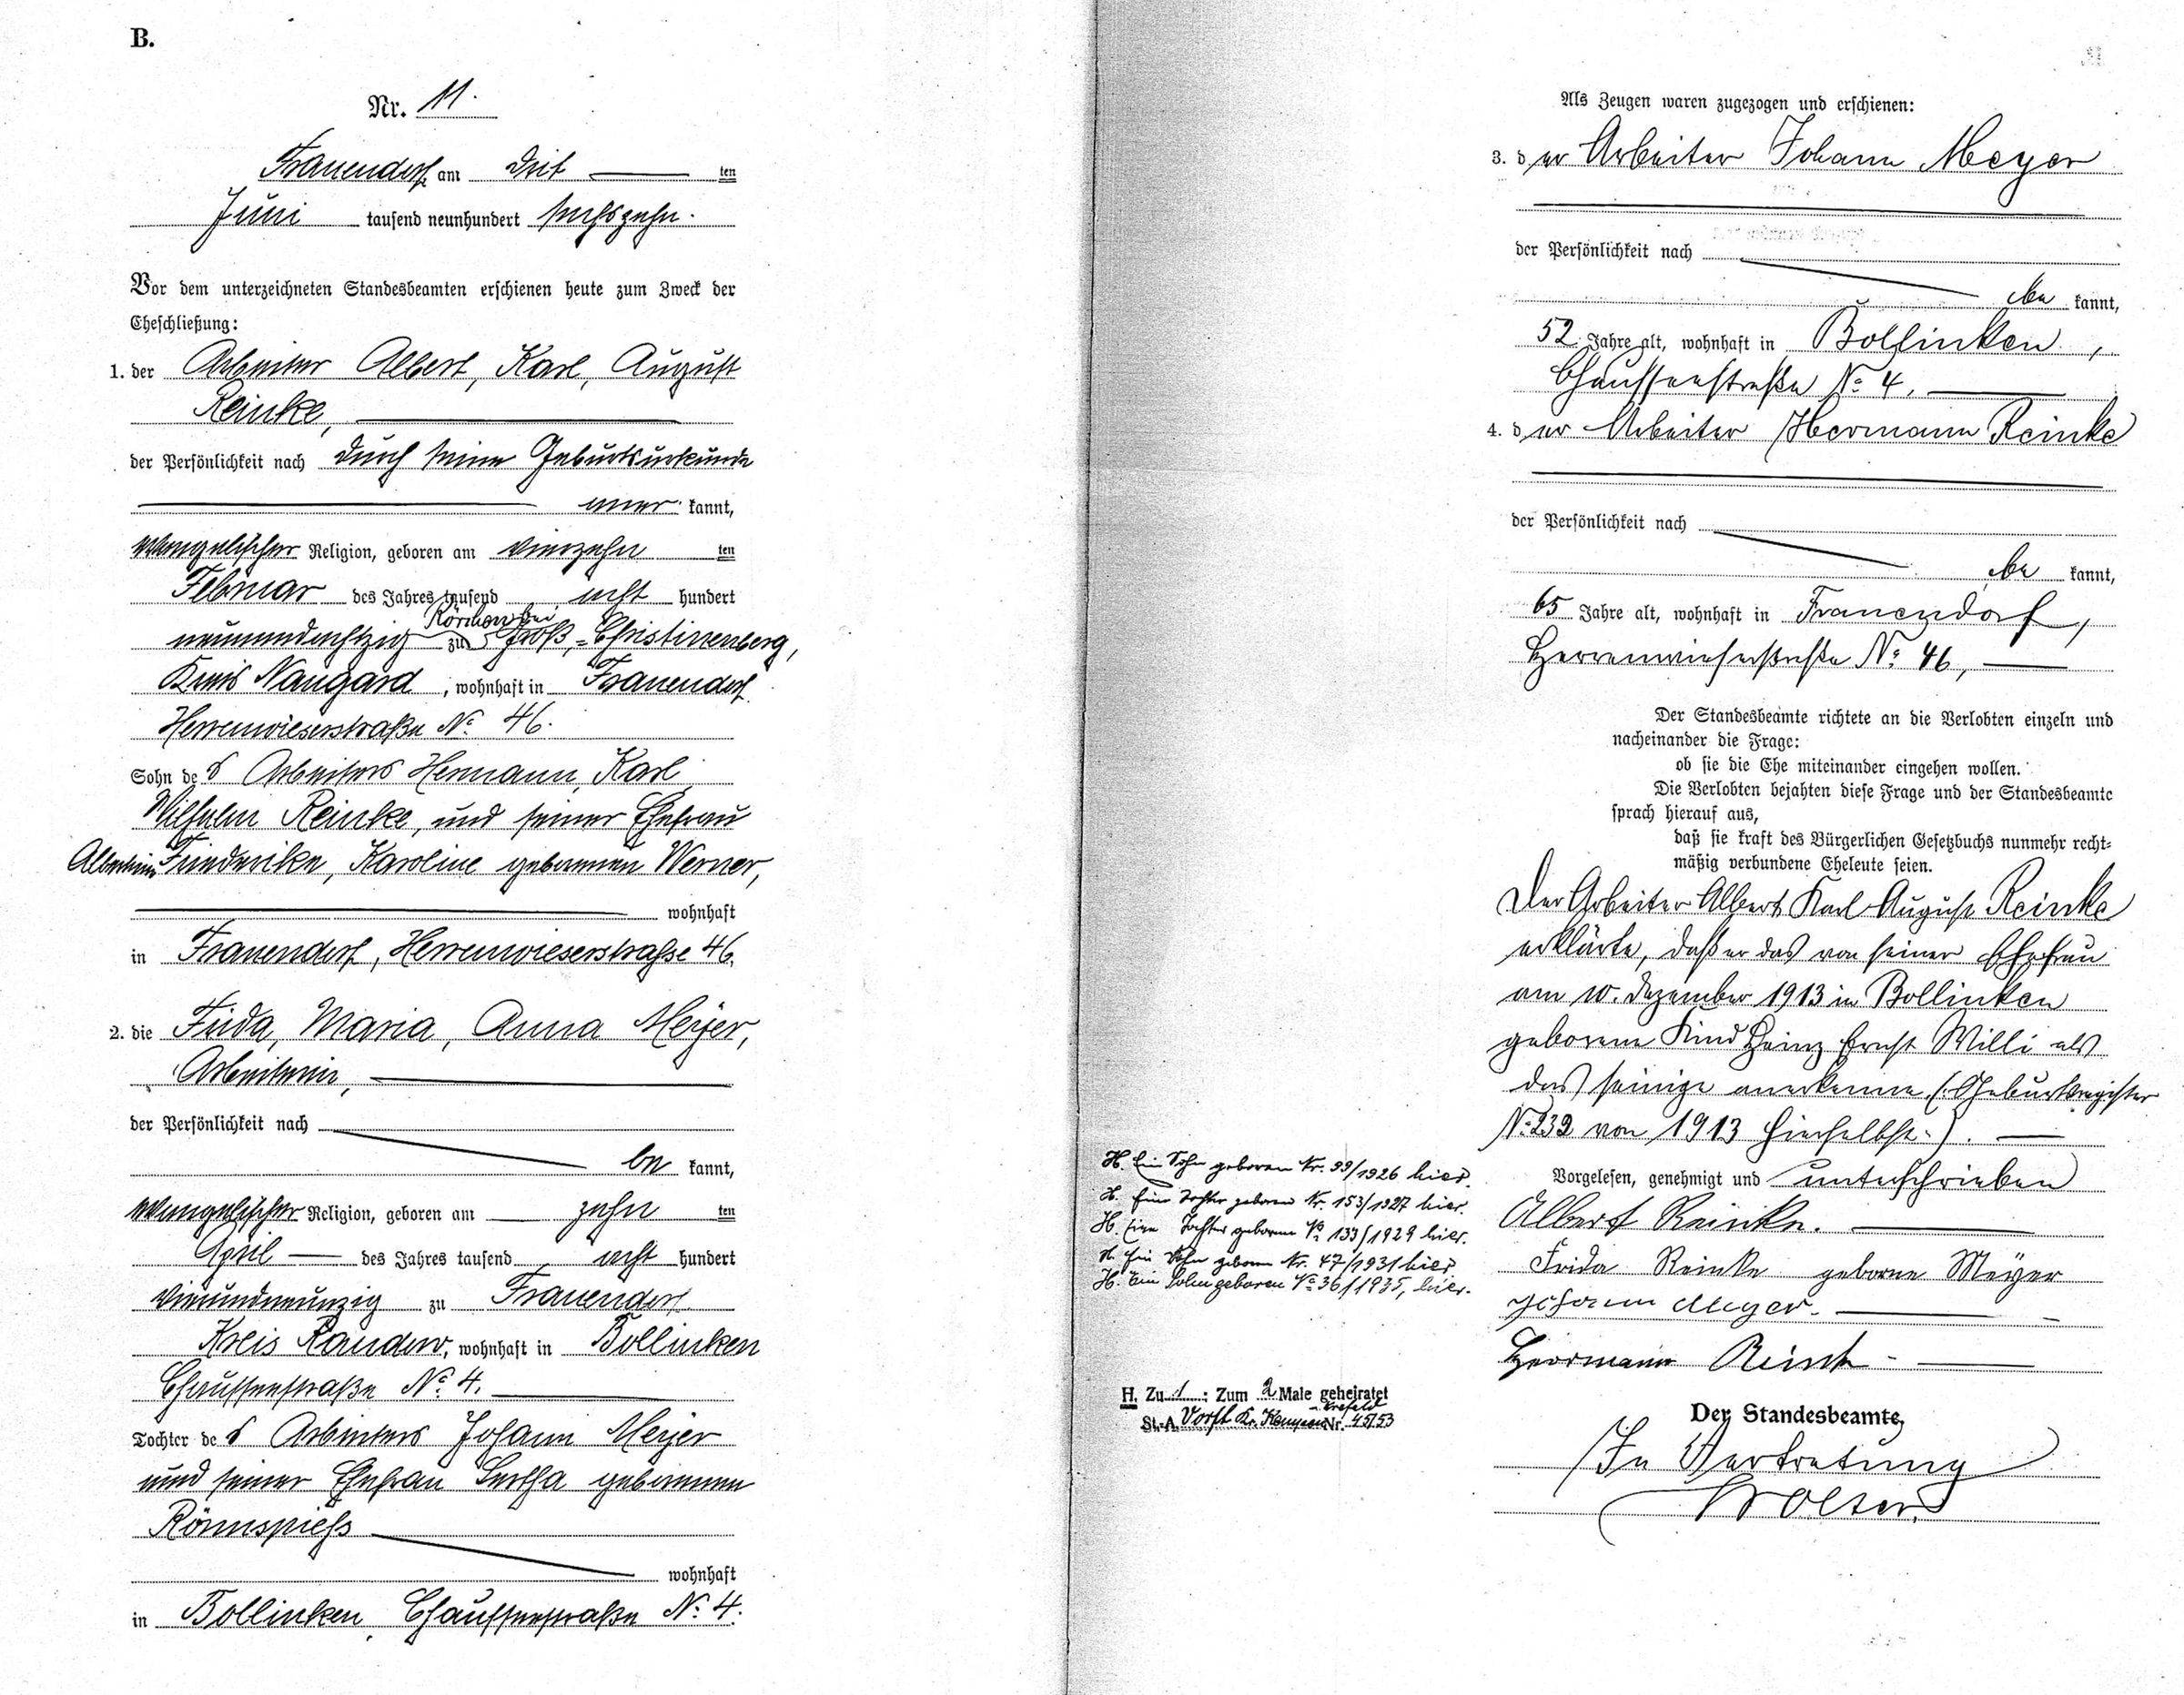 B.
Nr. 11.
Frauendorf am drit ten
Juni tausend neunhundert sechszehn.
Vor dem unterzeichneten Standesbeamten erschienen heute zum Zweck der
Eheschließung:
1. der Arbeiter Albert, Karl, August
Reinke,
der Persönlichkeit nach durch seine Geburtsurkunde
aner kannt,
evangelischer Religion, geboren am vierzehn ten
Februar des Jahres tausend acht hundert
Rörchow bei
neunundachtzig zu Groß-Christinenberg,
Kreis Naugard, wohnhaft in Frauendorf
Herrenwieserstraße No 46.
Sohn des Arbeiters Hermann, Karl
Wilhelm Reinke, und seiner Ehefrau
Albertine Friederike, Karoline geborenen Werner,
wohnhaft
in Frauendorf, Herrenwieserstrasse 46.
2. die Frida, Maria, Anna Meyer,
Arbeiterin,
der Persönlichkeit nach
be kannt,
evangelischer Religion, geboren am zehn ten
April des Jahres tausend acht hundert
vierundneunzig zu Frauendorf
Kreis Randow, wohnhaft in Bollinken
Chausseestraße No 4.
Tochter des Arbeiters Johann Meyer
und seiner Ehefrau Bertha geborenen
Rönnspiess
wohnhaft
in Bollinken Chausseestraße No 4.
Als Zeugen waren zugezogen und erschienen:
3. der Arbeiter Johann Meyer
der Persönlichkeit nach
be kannt,
52 Jahre alt, wohnhaft in Bollinken,
Chausseestraße No 4,
4. der Arbeiter Hermann Reinke
der Persönlichkeit nach
be kannt,
65 Jahre alt, wohnhaft in Frauendorf,
Herrenwieserstraße No 46,
Der Standesbeamte richtete an die Verlobten einzeln und
nacheinander die Frage:
ob sie die Ehe miteinander eingehen wollen.
Die Verlobten bejahten diese Frage und der Standesbeamte
sprach hierauf aus,
daß sie kraft des Bürgerlichen Gesetzbuchs nunmehr recht-
mäßig verbundene Eheleute seien.
Der Arbeiter Albert Karl August Reinke
erklärte, daß er das von seiner Ehefrau
am 10. Dezember 1913 in Bollinken
geborene Kind Heinz Ernst Willi als
das seinige anerkenne (: Geburtsregister
No 232 von 1913 hierselbst :).
Vorgelesen, genehmigt und unterschrieben
Albert Reinke.
Frida Reinke geborne Meyer
Johann Meyer.
Herrmann Reink
Der Standesbeamte,
In Vertretung
Wolter.
H. Ein Sohn geboren Nr. 99/1926 hier.
H. Eine Tochter geboren Nr. 153/1927 hier.
H. Eine Tochter geboren No 133/1929 hier.
H. Ein Sohn geboren Nr. 47/1931 hier
H. Ein Sohn geboren No 36/1935, hier.
H. Zu 1 : Zum 2 Male geheiratet
St.-A. Vorst Kr. Kempen-Krefeld Nr. 45/53